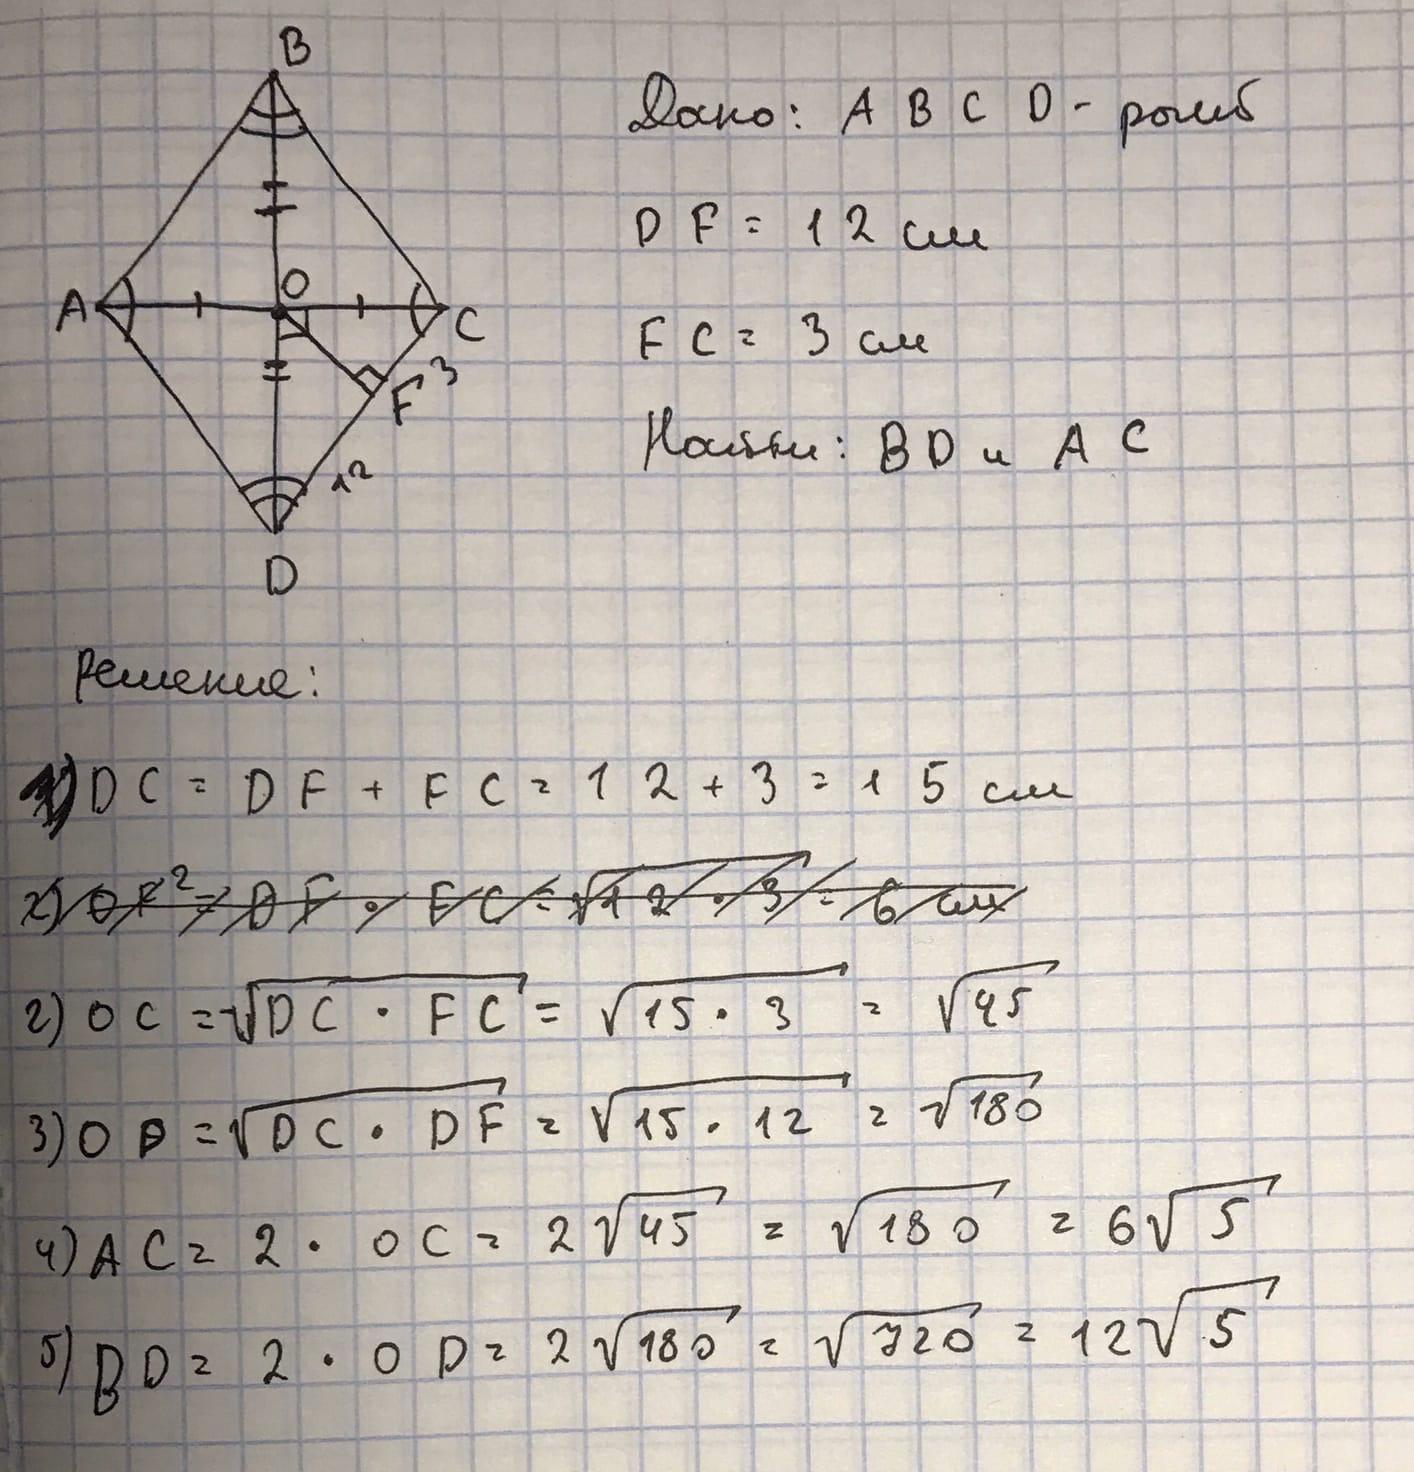 B
Дано: A B C D - ромб
DF = 12 см
O
A
C
FC = 3 см
3
F
Найти: BD и AC
12
D
Решение:
1) DC = DF + FC = 12 + 3 = 15 см
2) OF² = DF · FC = √12 · 3 = 6 см
2) OC = √DC · FC = √15 · 3 = √45
3) OD = √DC · DF = √15 · 12 = √180
4) AC = 2 · OC = 2√45 = √180 = 6√5
5) BD = 2 · OD = 2√180 = √720 = 12√5